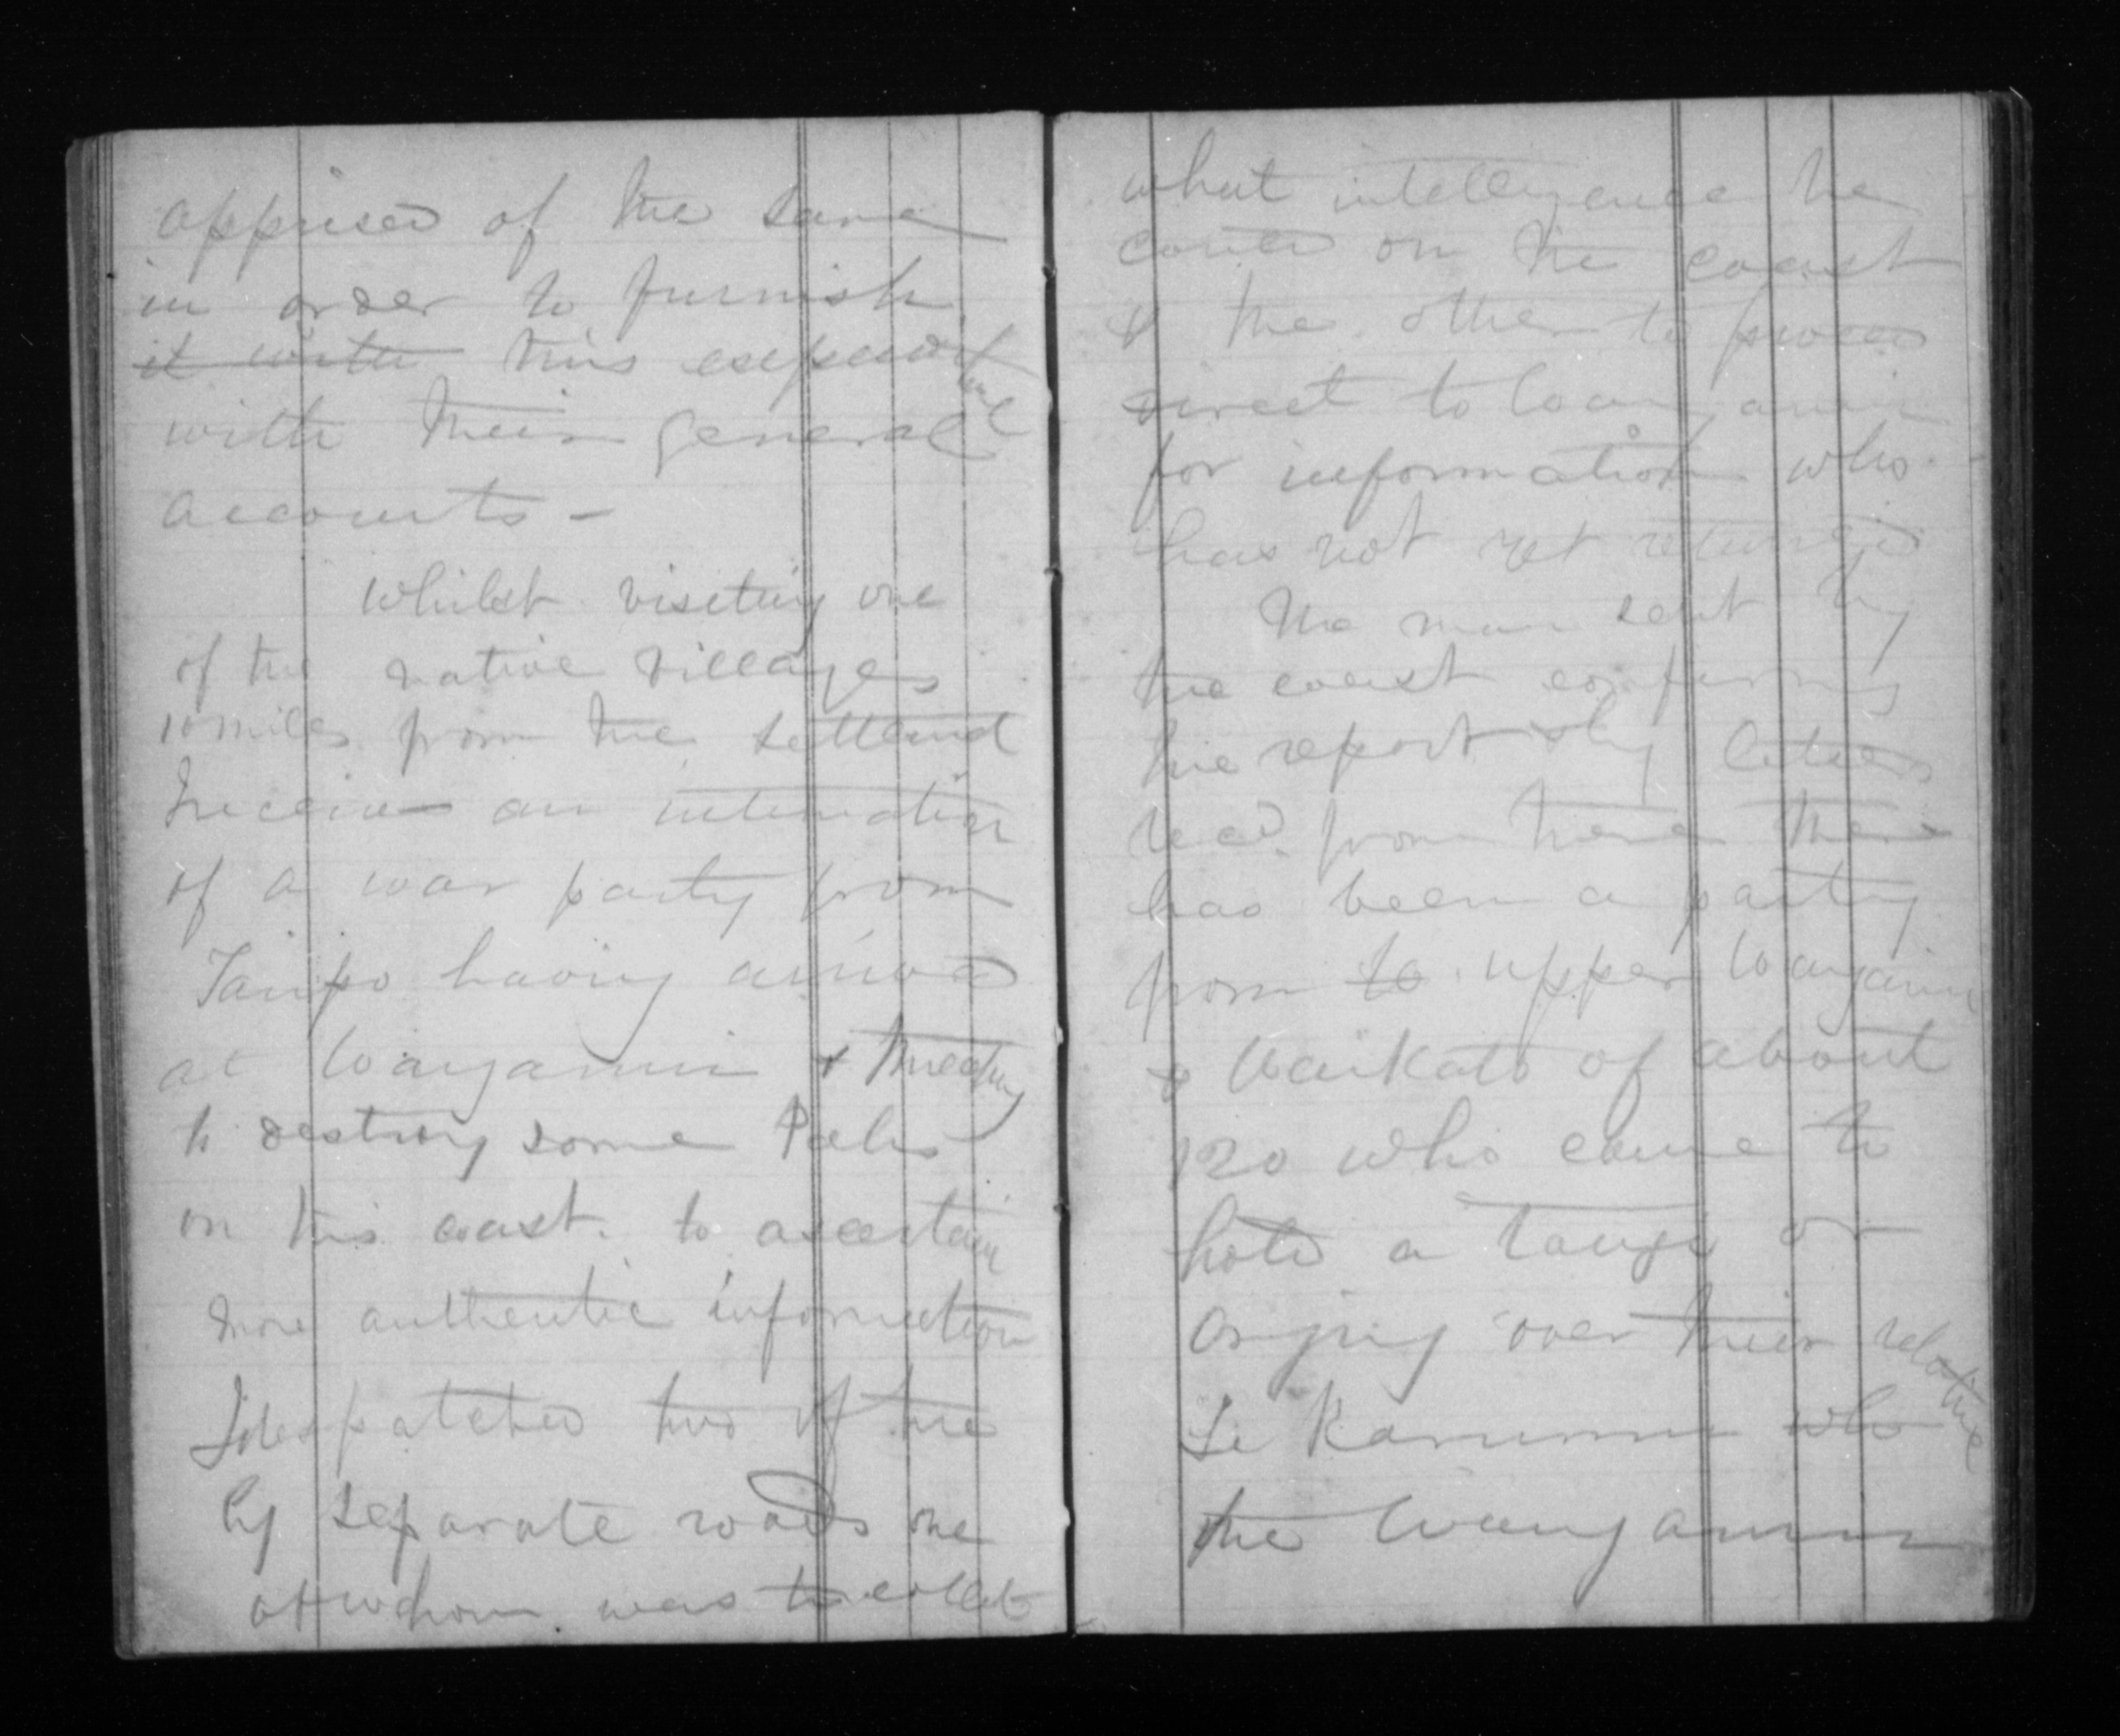 apprised of the same
in order to furnish
it with this expenditure
with their general
accounts -
Whilst visiting one
of the native villages
10 miles from the settlemt
I receive an intimation
of a war party from
Taupo having arrived
at Wanganui &
to destroy some Pahs
on this coast. to ascertain
more authentic information
I despatched two of the
by separate roads one
of whom was to collect
what intelligence he
could on the coast
& the other to proceed
direct to Wanganui
for information who
has not yet returned
The man sent by
the coast confirms
the report by letters
recd. from there there
has been a party
from to upper Wanganui
& Waikato of about
120 who came to
hold a Tangi or
crying over their relative
Te who
the Wanganui